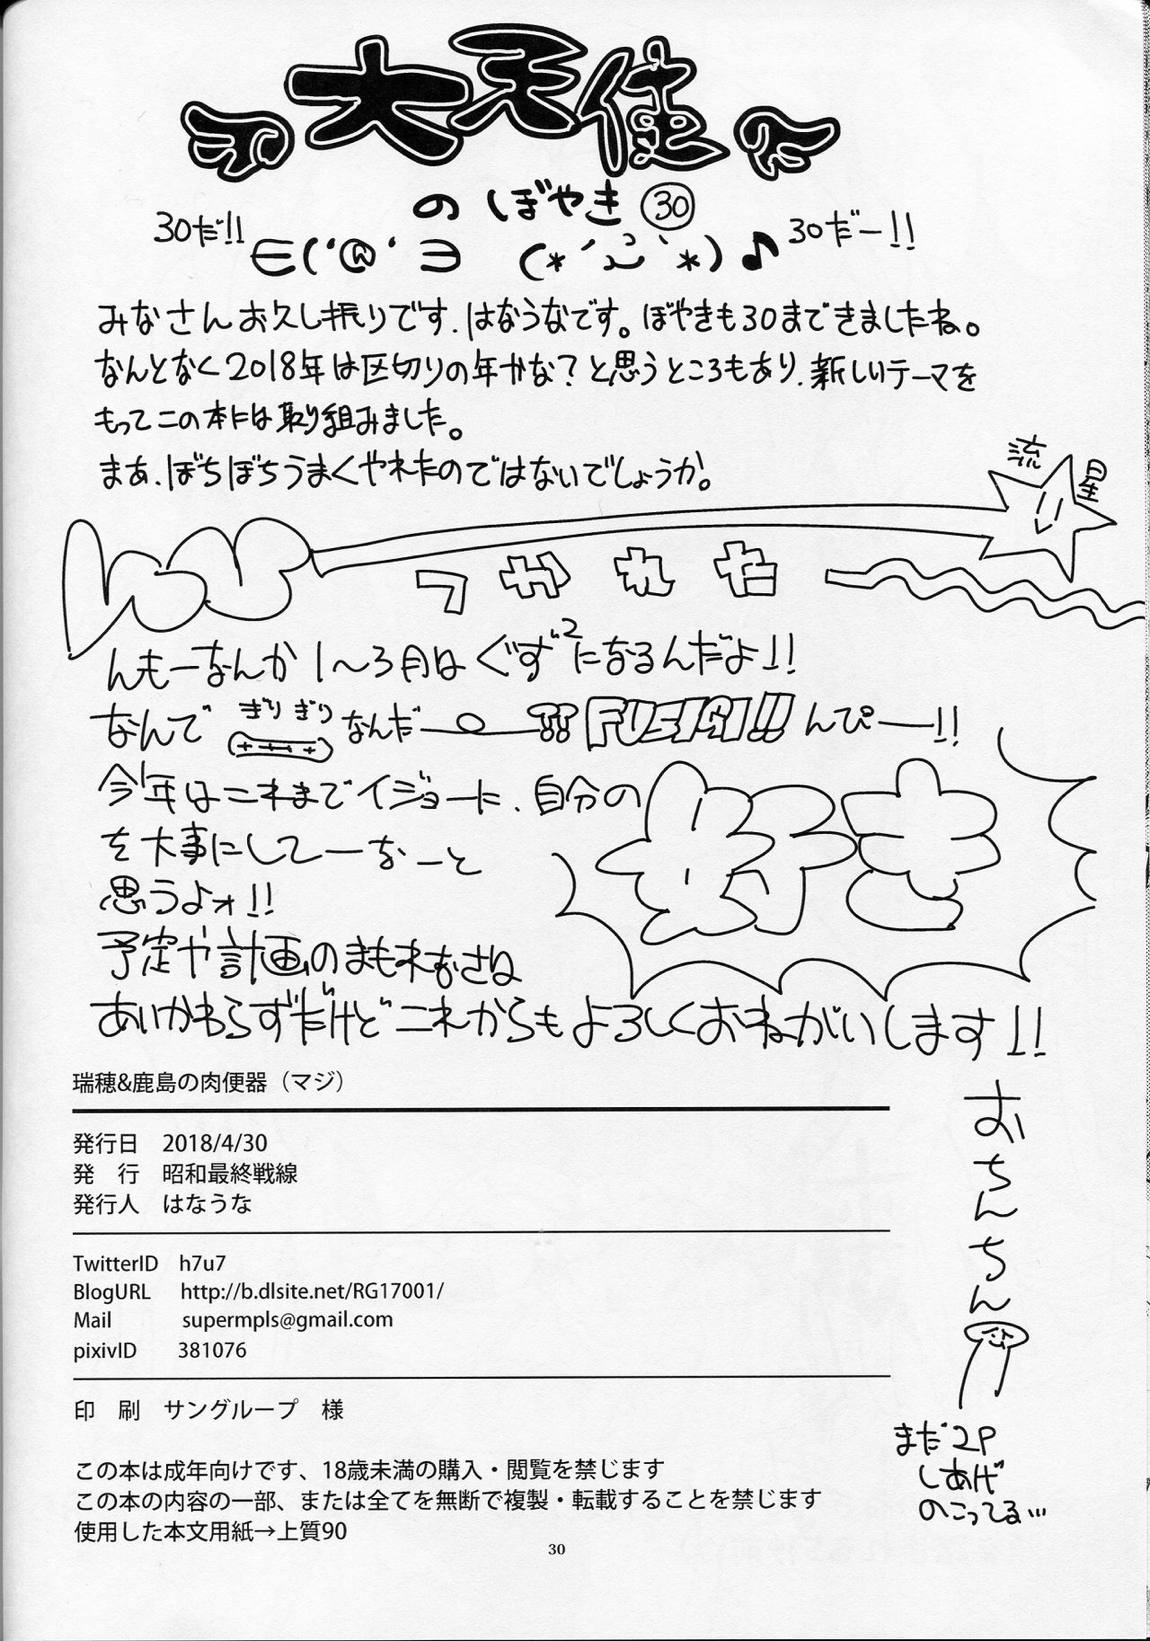 大天使
のぼやき㉚
30だ!!
∈('@'∋
(*´ `*)♪
30だー!!
みなさんお久し振りです.はなうなです。ぼやきも30まできましたね。
なんとなく2018年は区切りの年かな?と思うところもあり.新しいテーマを
もってこの本には取り組みました。
まあ.ぼちぼちうまくやれたのではないでしょうか。
流星
つかれた
んもーなんか1〜3月はぐず²になるんだよ!!
なんで ぎりぎり なんだー FUSIAI!! んぴー!!
今年はこれまでイジョーに、自分の 好き
を大事にしてーなーと
思うよォ!!
予定や計画のまもれなさは
あいかわらずだけどこれからもよろしくおねがいします!!
おちんちん
まだ2P
しあげ
のこってる…
瑞穂&鹿島の肉便器(マジ)
発行日 2018/4/30
発 行 昭和最終戦線
発行人 はなうな
TwitterID h7u7
BlogURL http://b.dlsite.net/RG17001/
Mail supermpls@gmail.com
pixivID 381076
印 刷 サングループ 様
この本は成年向けです、18歳未満の購入・閲覧を禁じます
この本の内容の一部、または全てを無断で複製・転載することを禁じます
使用した本文用紙→上質90
30